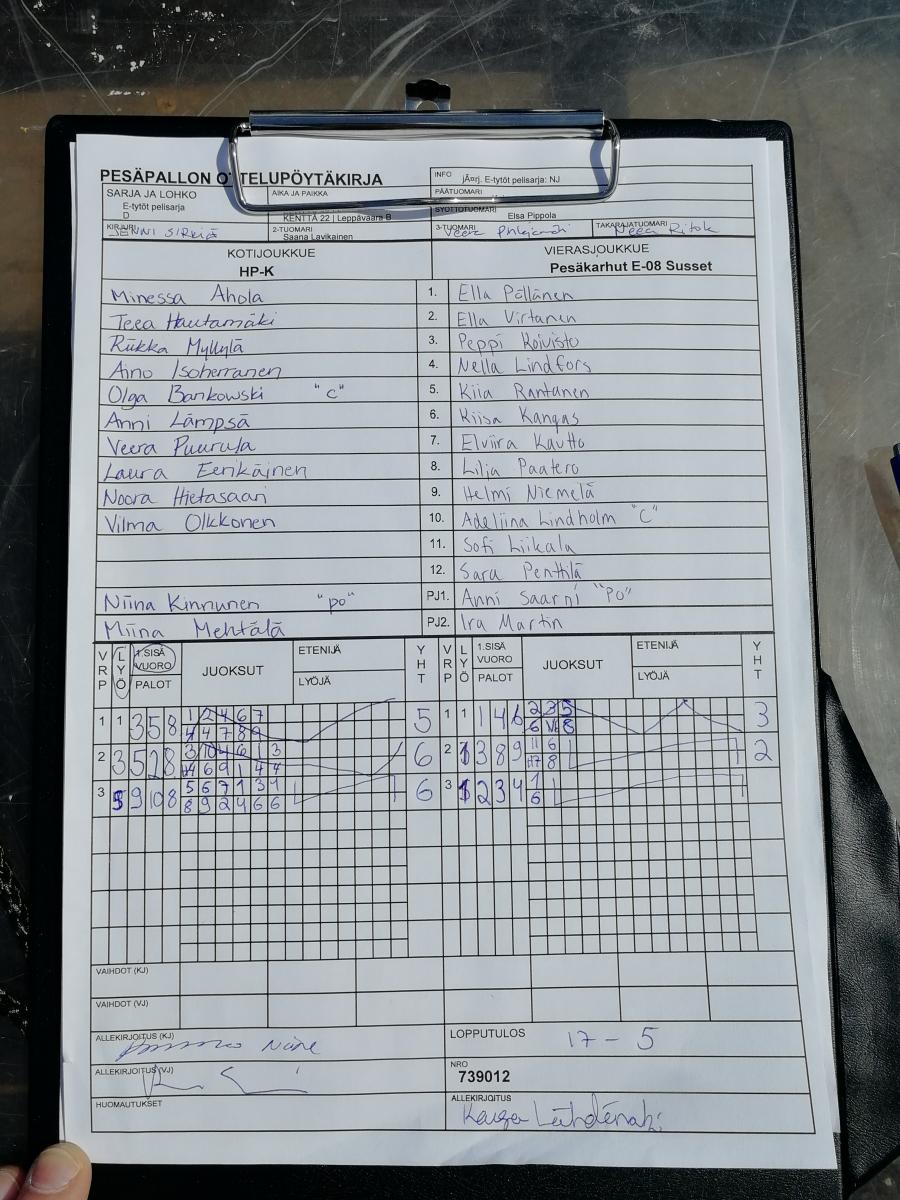 PESÄPALLON OTTELUPÖYTÄKIRJA
SARJA JA LOHKO
E-tytöt pelisarja
D
AIKA JA PAIKKA
KENTTÄ 22 | Leppävaara B
INFO jÄ¤rj. E-tytöt pelisarja: NJ
PÄÄTUOMARI
SYÖTTÖTUOMARI
Elsa Pippola
KIRJURI
2-TUOMARI
Saana Lavikainen
3-TUOMARI
Veera
TAKARAJATUOMARI
Neea
KOTIJOUKKUE
HP-K
VIERASJOUKKUE
Pesäkarhut E-08 Susset
Minessa Ahola 1. Ella Pöllänen
Teea Hautamäki 2. Ella Virtanen
Riikka Myllylä 3. Peppi Koivisto
Aino Isoherranen 4. Nella Lindfors
Olga Bankowski "c" 5. Kiia Rantanen
Anni Lämpsä 6. Kiisa Kangas
Veera 7. Elviira Kautto
Laura Eerikäinen 8. Lilja Paatero
Noora Hietasaari 9. Helmi Niemelä
Vilma Olkkonen 10. Adeliina Lindholm "C"
11. Sofi Liikala
12. Sara Penttilä
Niina Kinnunen "po" PJ1. Anni Saarni "Po"
Miina Mehtälä PJ2. Ira Martin
VRP LYÖ 1.SISÄ VUORO PALOT JUOKSUT ETENIJÄ LYÖJÄ YHT VRP LYÖ 1.SISÄ VUORO PALOT JUOKSUT ETENIJÄ LYÖJÄ YHT
1 1 3 5 8 1 2 4 6 7 5 1 1 1 4 6 2 3 5 3
4 4 7 8 9 6 8
2 3 5 2 8 3 10 4 6 1 3 6 2 1 3 8 9 11 6 2
4 6 9 1 4 4 8
3 5 9 10 8 5 6 7 1 3 4 6 3 1 2 3 4 1
8 9 2 4 6 6 6
VAIHDOT (KJ)
VAIHDOT (VJ)
ALLEKIRJOITUS (KJ)
LOPPUTULOS 17 - 5
ALLEKIRJOITUS (VJ)
NRO
739012
HUOMAUTUKSET
ALLEKIRJOITUS